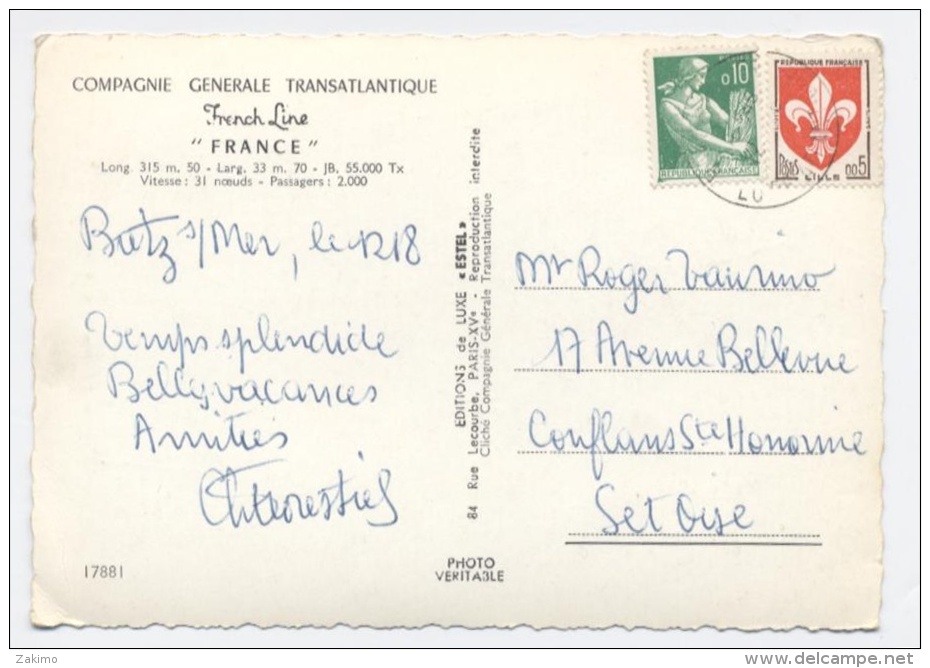 COMPAGNIE GENERALE TRANSATLANTIQUE
French Line
"FRANCE"
Long. 315 m. 50 - Larg. 33 m. 70 - JB, 55.000 Tx
Vitesse : 31 nœuds - Passagers : 2.000
Batz s/Mer, le 1218
Temps splendide
Belles vacances
Amitiés
17881
EDITIONS de LUXE « ESTEL »
84 Rue Lecourbe, PARIS-XVe - Reproduction interdite
Cliché Compagnie Générale Transatlantique
PHOTO
VERITABLE
POSTES
0,10
REPUBLIQUE FRANÇAISE
REPUBLIQUE FRANÇAISE
Postes 0,05
LILLE
Mr Roger
17 Avenue Bellevue
Conflans Ste Honorine
S et Oise
Zakimo
www.delcampe.net